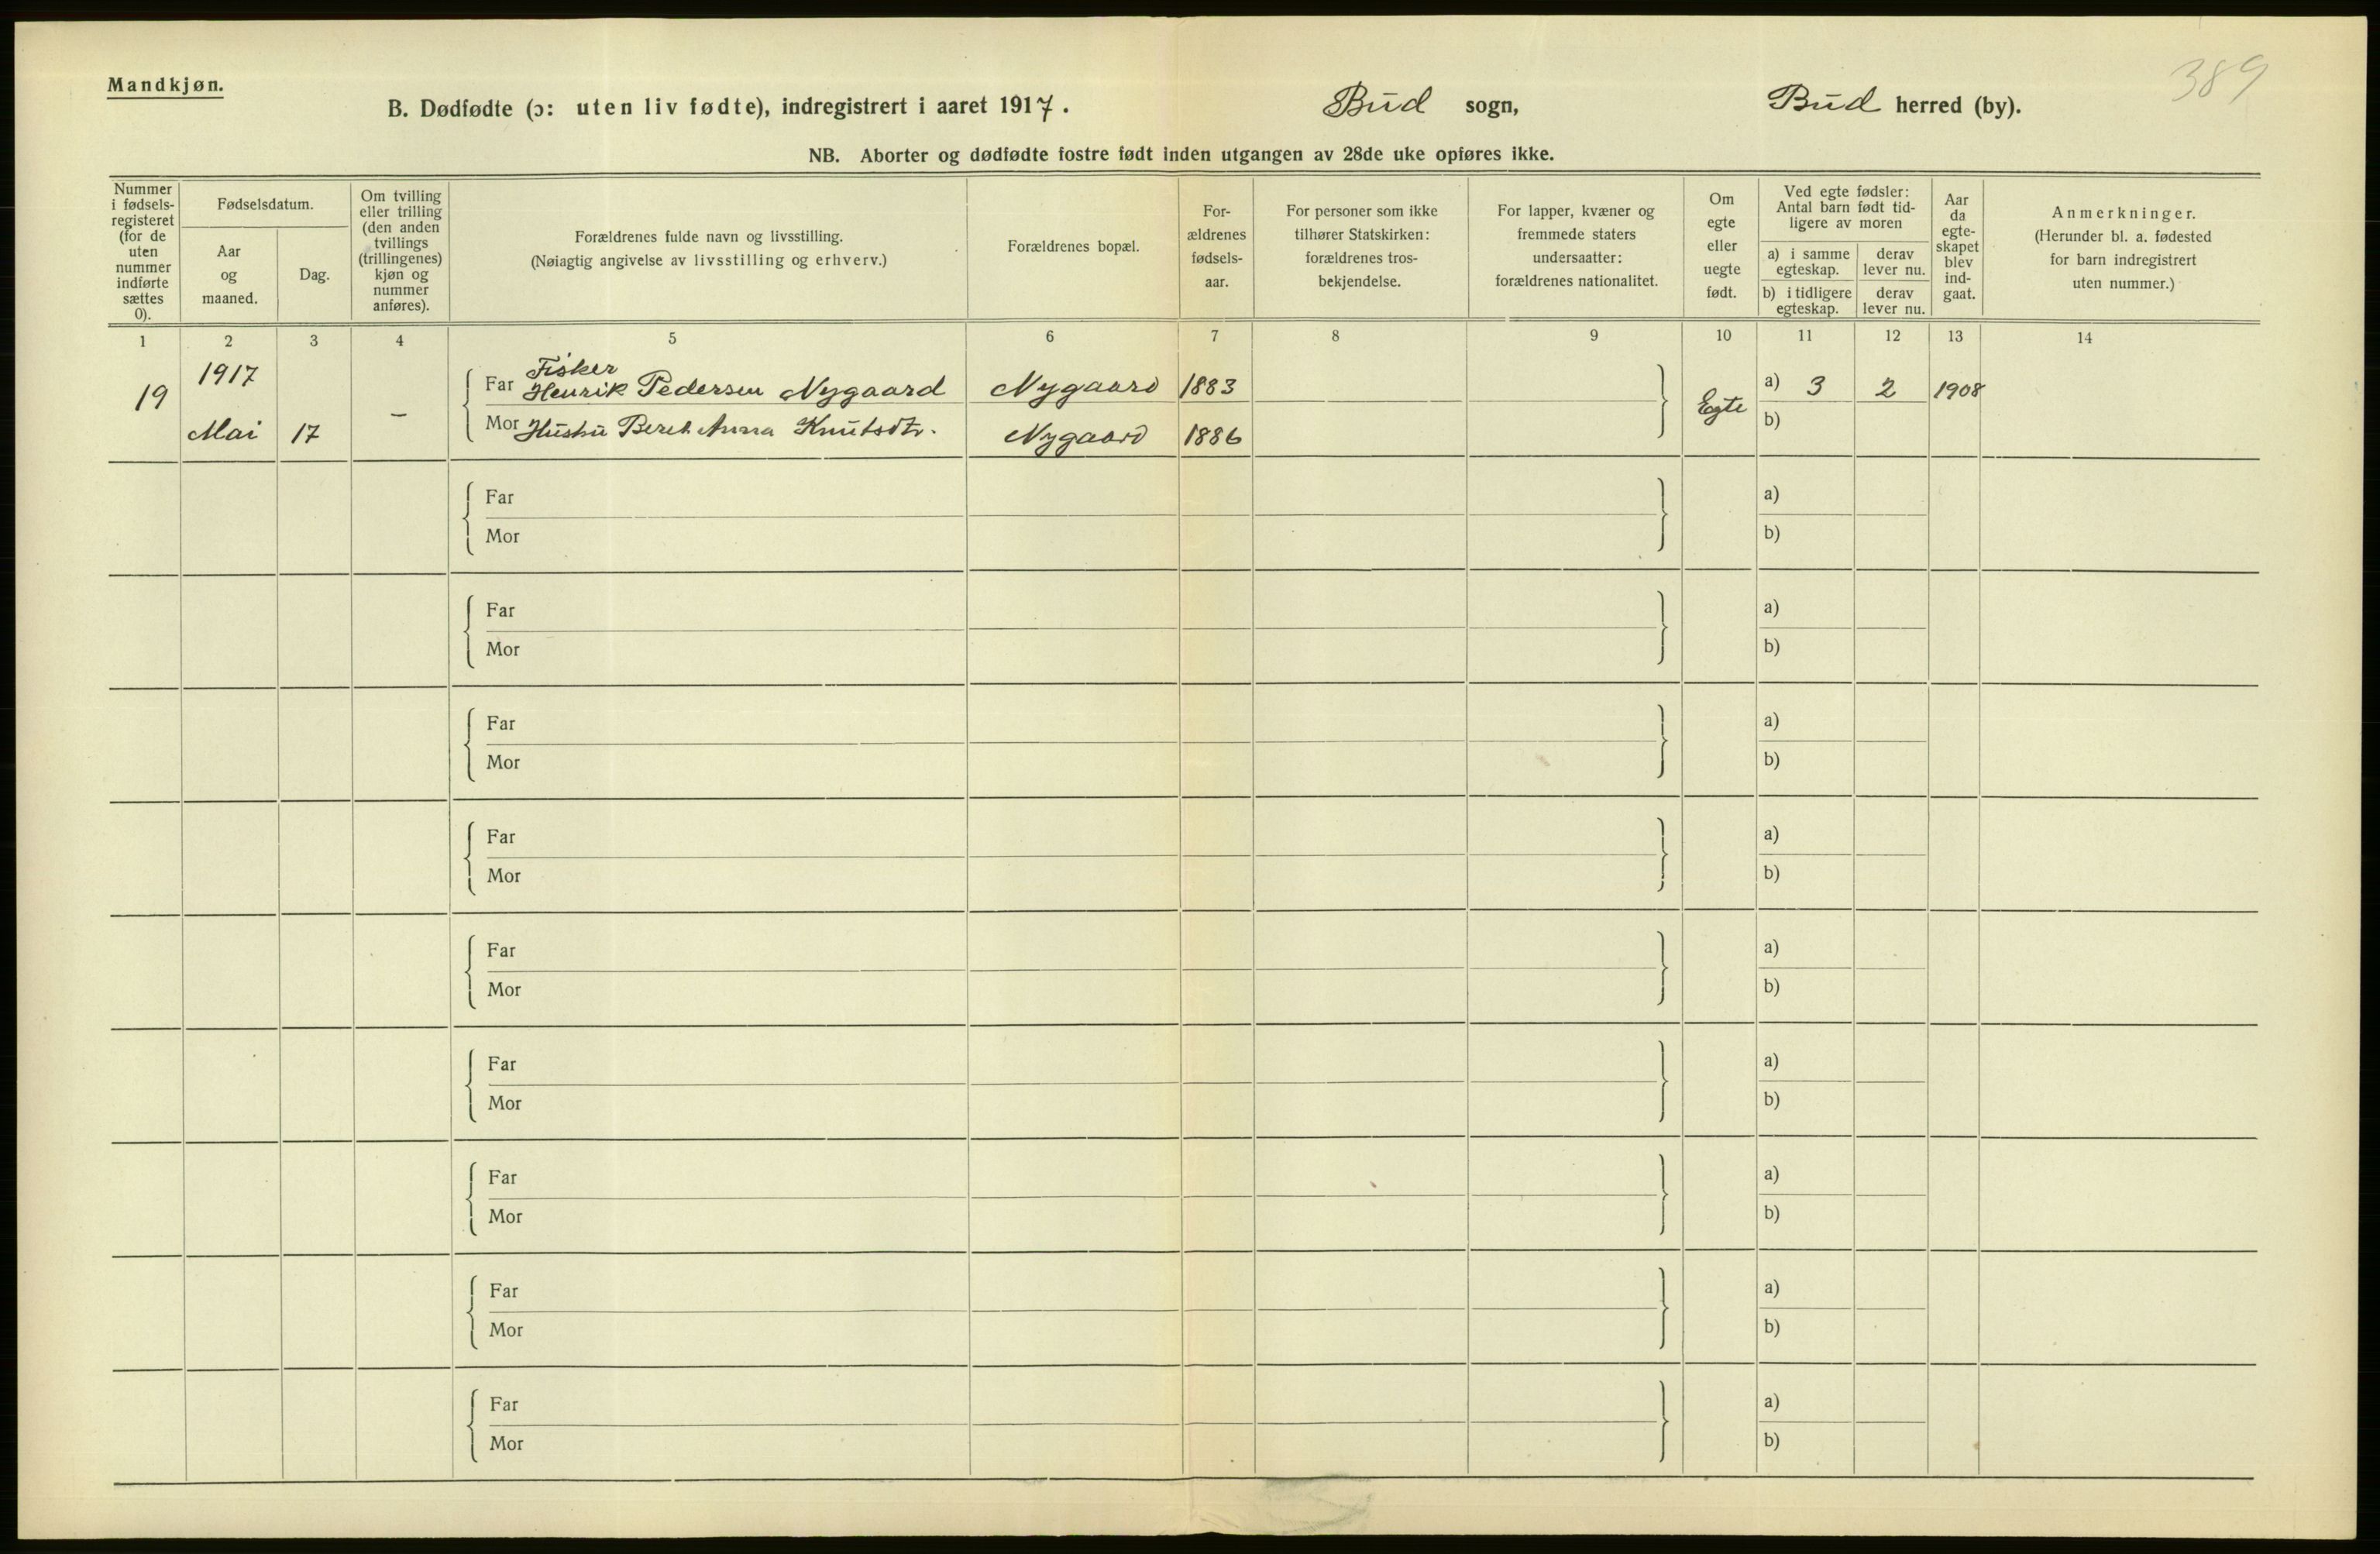 389
Mandkjøn.
B. Dødfødte (ɔ: uten liv fødte), indregistrert i aaret 1917. Bud sogn, Bud herred (by).
NB. Aborter og dødfødte fostre født inden utgangen av 28de uke opføres ikke.
Nummer
i fødsels-
registeret
(for de
uten
nummer
indførte
sættes
0).
Fødselsdatum.
Aar
og
maaned.
Dag.
Om tvilling
eller trilling
(den anden
tvillings
(trillingenes)
kjøn og
nummer
anføres).
Forældrenes fulde navn og livsstilling.
(Nøiagtig angivelse av livsstilling og erhverv.)
Forældrenes bopæl.
For-
ældrenes
fødsels-
aar.
For personer som ikke
tilhører Statskirken:
forældrenes tros-
bekjendelse.
For lapper, kvæner og
fremmede staters
undersaatter:
forældrenes nationalitet.
Om
egte
eller
uegte
født.
Ved egte fødsler:
Antal barn født tid-
ligere av moren
a) i samme
egteskap.
derav
lever nu.
b) i tidligere
egteskap.
derav
lever nu.
Aar
da
egte-
skapet
blev
ind-
gaat.
Anmerkninger.
(Herunder bl. a. fødested
for barn indregistrert
uten nummer.)
1 2 3 4 5 6 7 8 9 10 11 12 13 14
19
1917
Mai 17
–
Fisker
Far Henrik Pedersen Nygaard Nygaard 1883
Mor Hustru Beret Anna Knutsdtr. Nygaard 1886
Egte
a) 3 2 1908
b)
Far a)
Mor b)
Far a)
Mor b)
Far a)
Mor b)
Far a)
Mor b)
Far a)
Mor b)
Far a)
Mor b)
Far a)
Mor b)
Far a)
Mor b)
Far a)
Mor b)